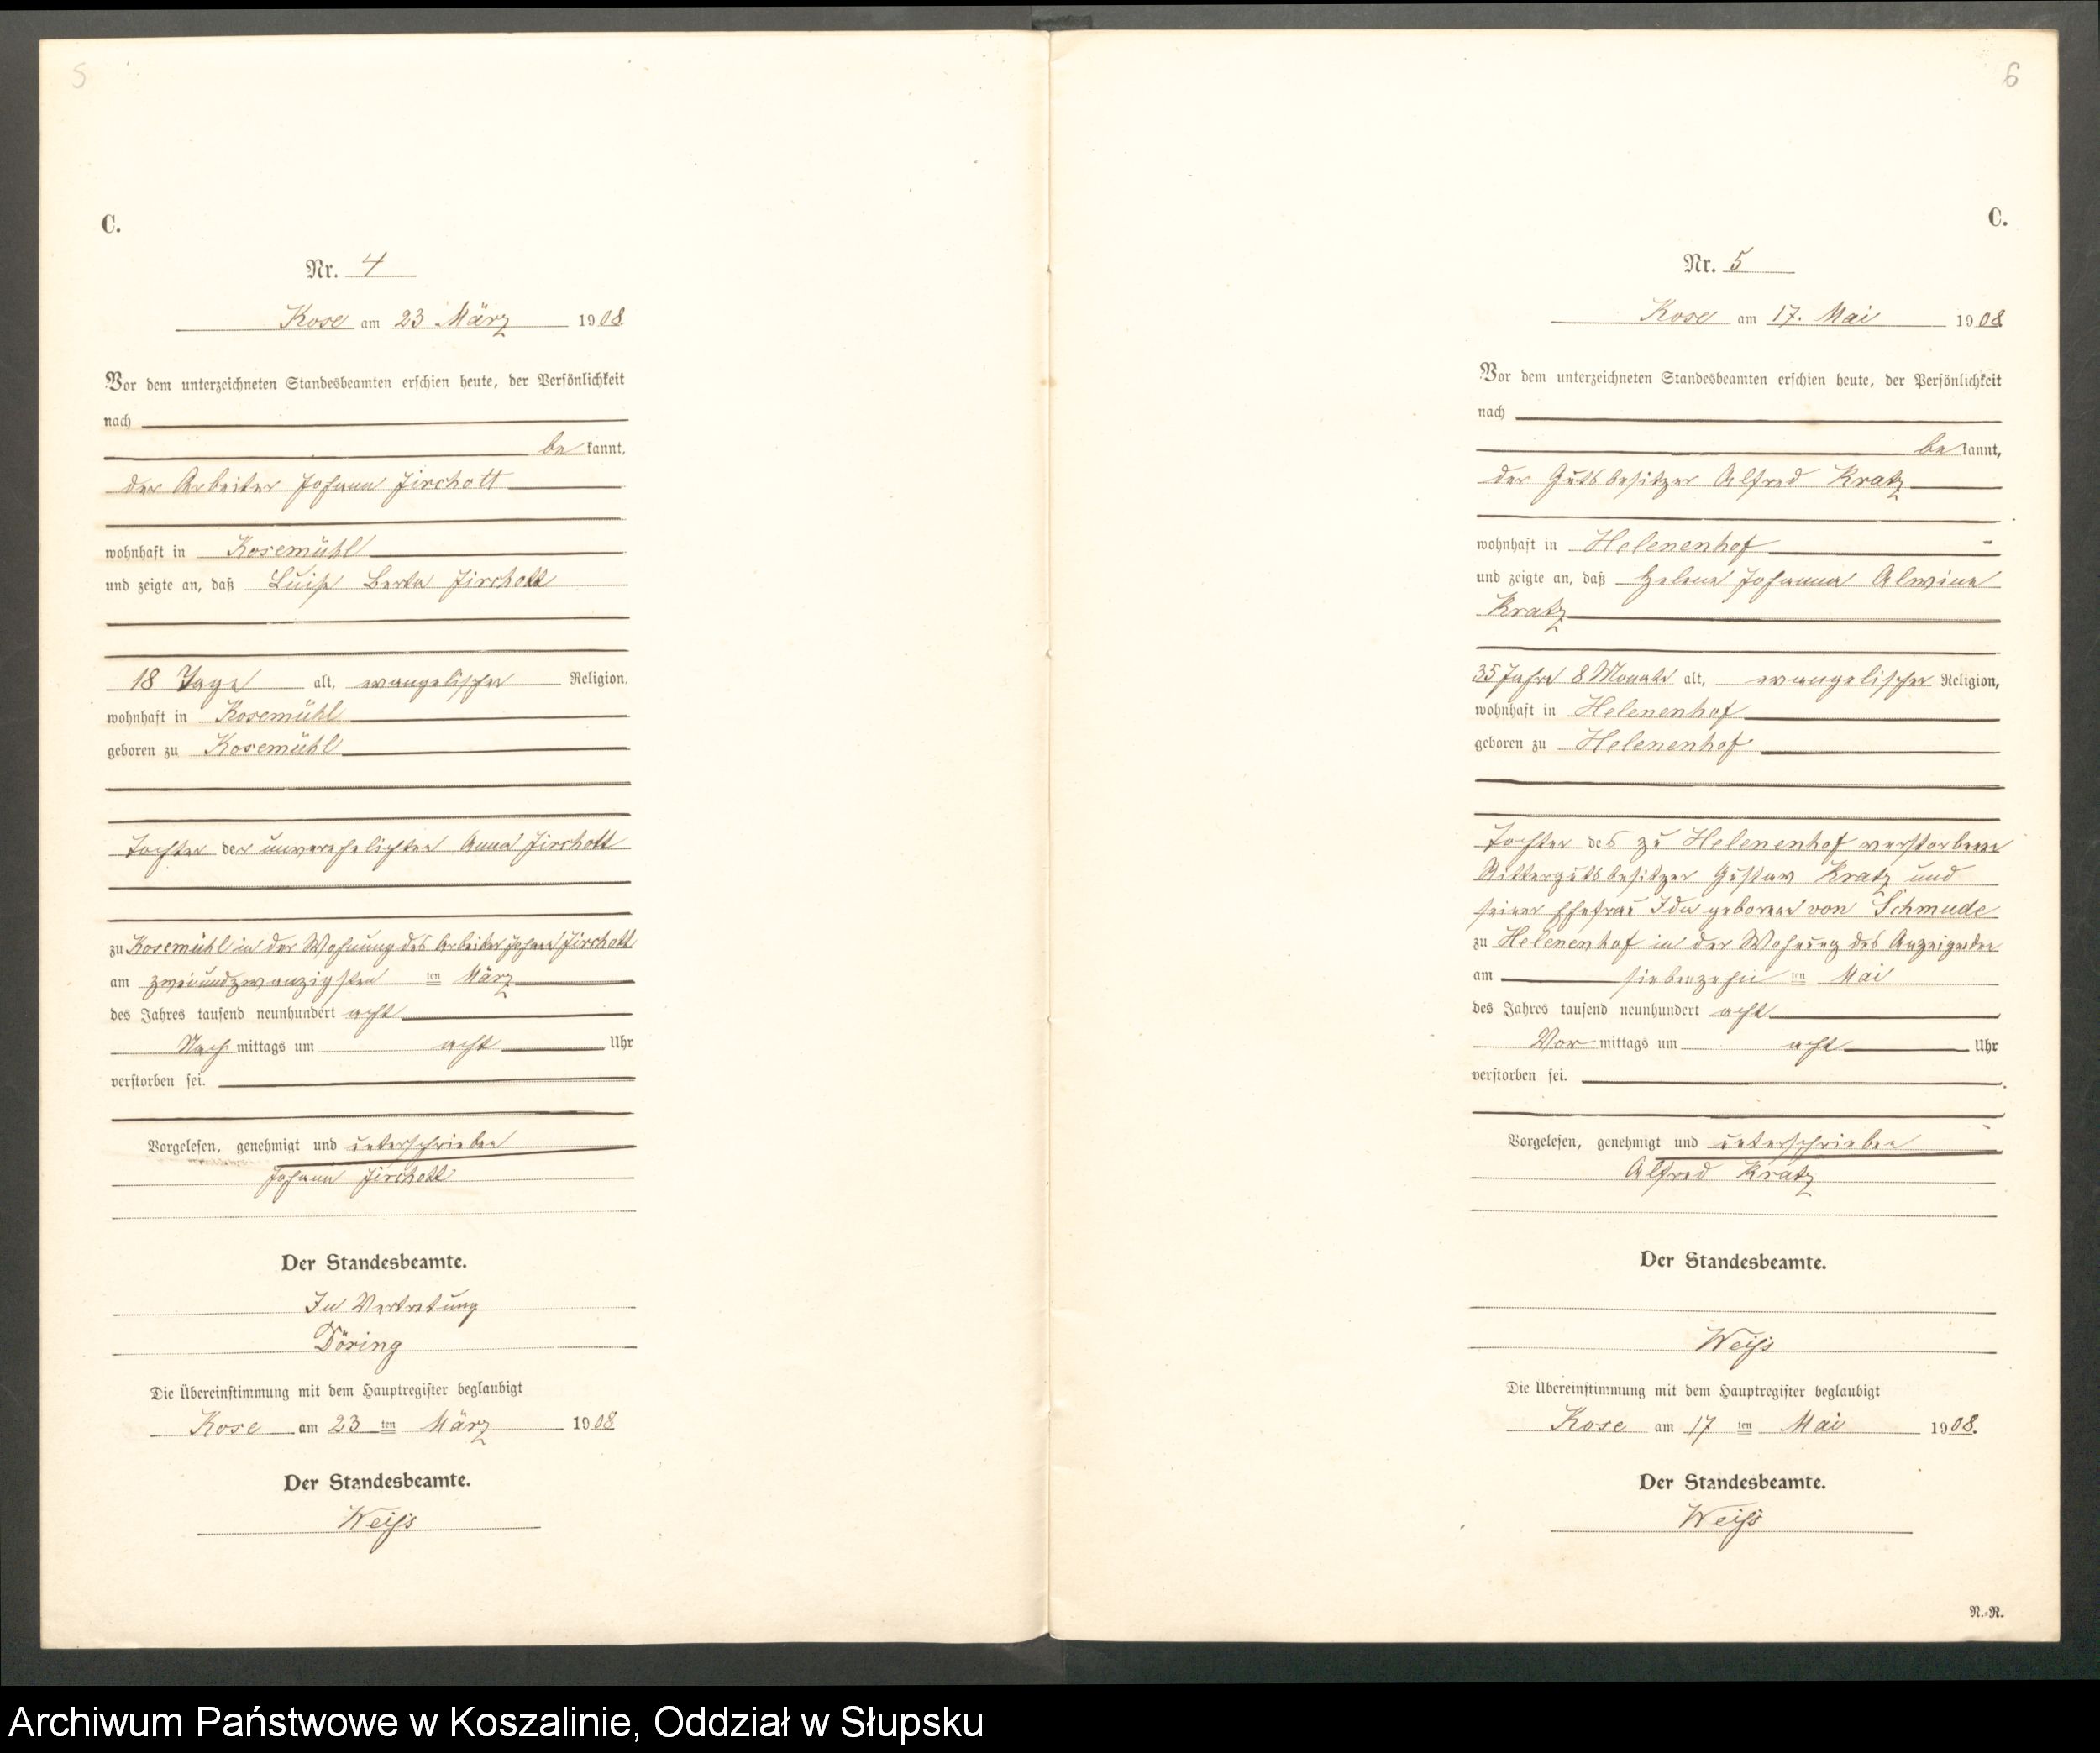 5
C.
Nr. 4
Kose am 23 März 1908
Vor dem unterzeichneten Standesbeamten erschien heute, der Persönlichkeit
nach
be kannt,
der Arbeiter Johann Jirchott
wohnhaft in Kosemühl
und zeigte an, daß Luise Berta Jirchott
18 Tage alt, evangelischer Religion,
wohnhaft in Kosemühl
geboren zu Kosemühl
Tochter der unverehelichten Anna Jirchott
zu Kosemühl in der Wohnung des Arbeiter Johann Jirchott
am zweiundzwanzigsten ten März
des Jahres tausend neunhundert acht
Nach mittags um acht Uhr
verstorben sei.
Vorgelesen, genehmigt und unterschrieben
Johann Jirchott
Der Standesbeamte.
In Vertretung
Döring
Die Übereinstimmung mit dem Hauptregister beglaubigt
Kose am 23 ten März 1908
Der Standesbeamte.
Weiss
6
C.
Nr. 5
Kose am 17. Mai 1908
Vor dem unterzeichneten Standesbeamten erschien heute, der Persönlichkeit
nach
be kannt,
der Gutsbesitzer Alfred Kratz
wohnhaft in Helenenhof
und zeigte an, daß Helene Johanna Alwine
Kratz
35 Jahre 8 Monate alt, evangelischer Religion,
wohnhaft in Helenenhof
geboren zu Helenenhof
Tochter des zu Helenenhof verstorbenen
Rittergutsbesitzer Gustav Kratz und
seiner Ehefrau Ida geborene von Schmude
zu Helenenhof in der Wohnung des Anzeigenden
am siebenzehn ten Mai
des Jahres tausend neunhundert acht
Vor mittags um acht Uhr
verstorben sei.
Vorgelesen, genehmigt und unterschrieben
Alfred Kratz
Der Standesbeamte.
Weiss
Die Übereinstimmung mit dem Hauptregister beglaubigt
Kose am 17 ten Mai 1908.
Der Standesbeamte.
Weiss
N.=R.
Archiwum Państwowe w Koszalinie, Oddział w Słupsku